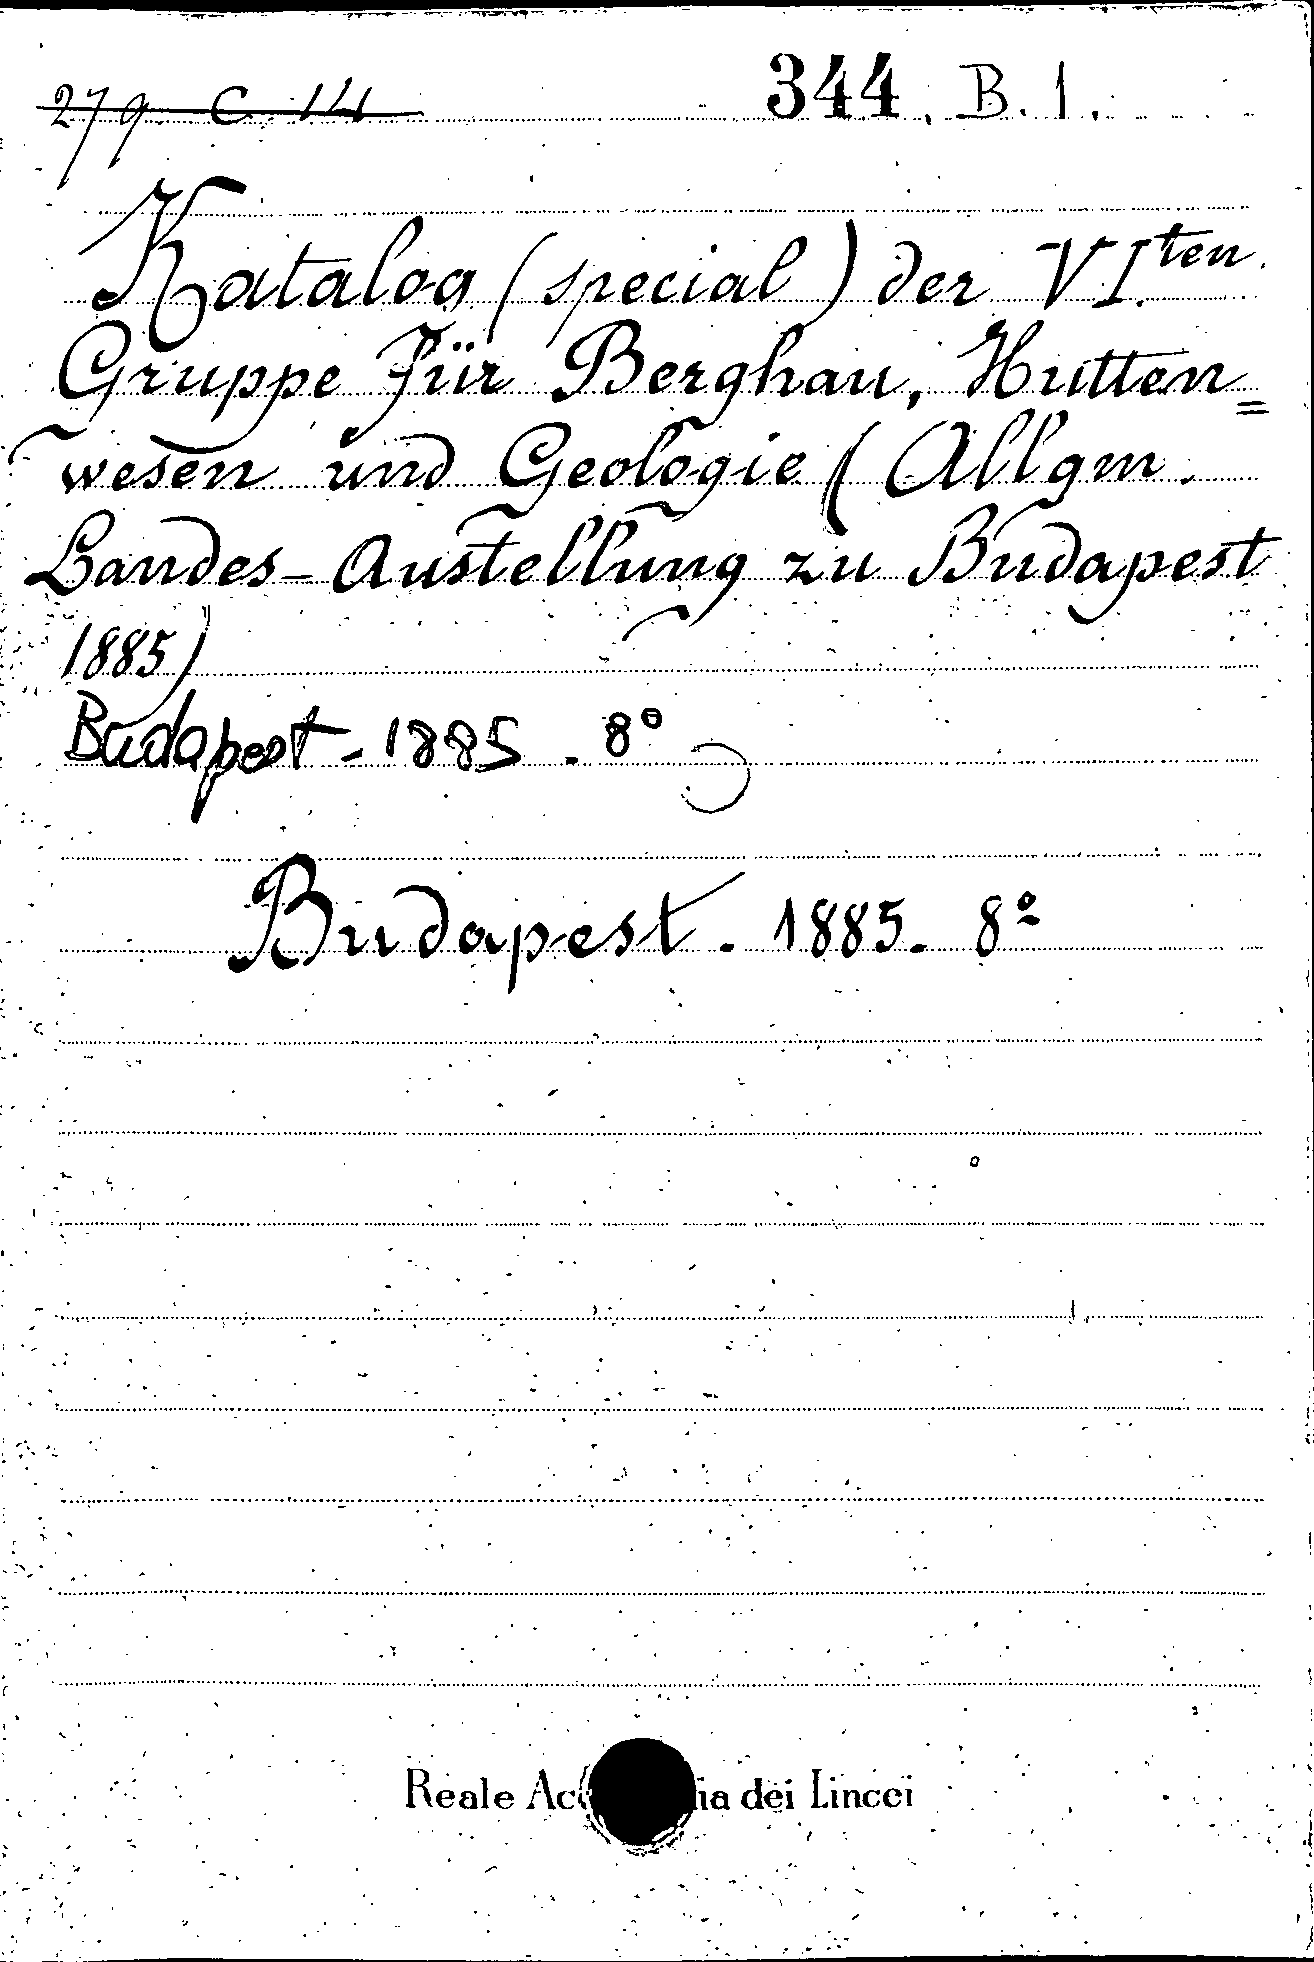 279. C. 14 344. B. 1.
Katalog (special) der VI.ten
Gruppe für Berghau, Hutten=
wesen und Geologie (Allgm.
Landes-Austellung zu Budapest
1885)
Budapest - 1885 . 8°
Budapest. 1885. 8°
Reale Acc ia dei Lincei